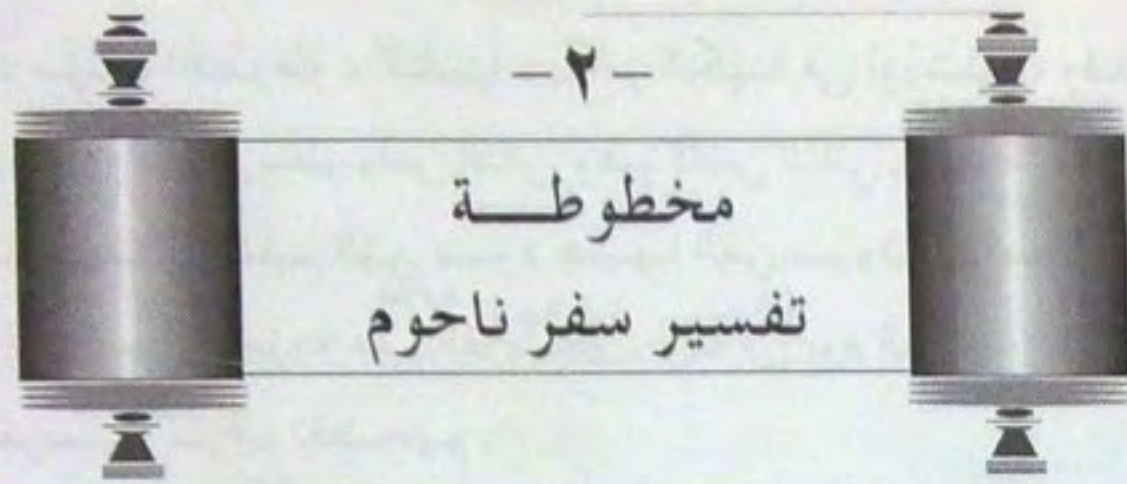 – ٢ –
مخطوطـــة
تفسير سفر ناحوم